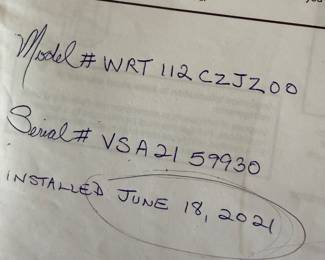 Model # WRT 112 CZJZ00
Serial # VSA21 59930
INSTALLED JUNE 18, 2021